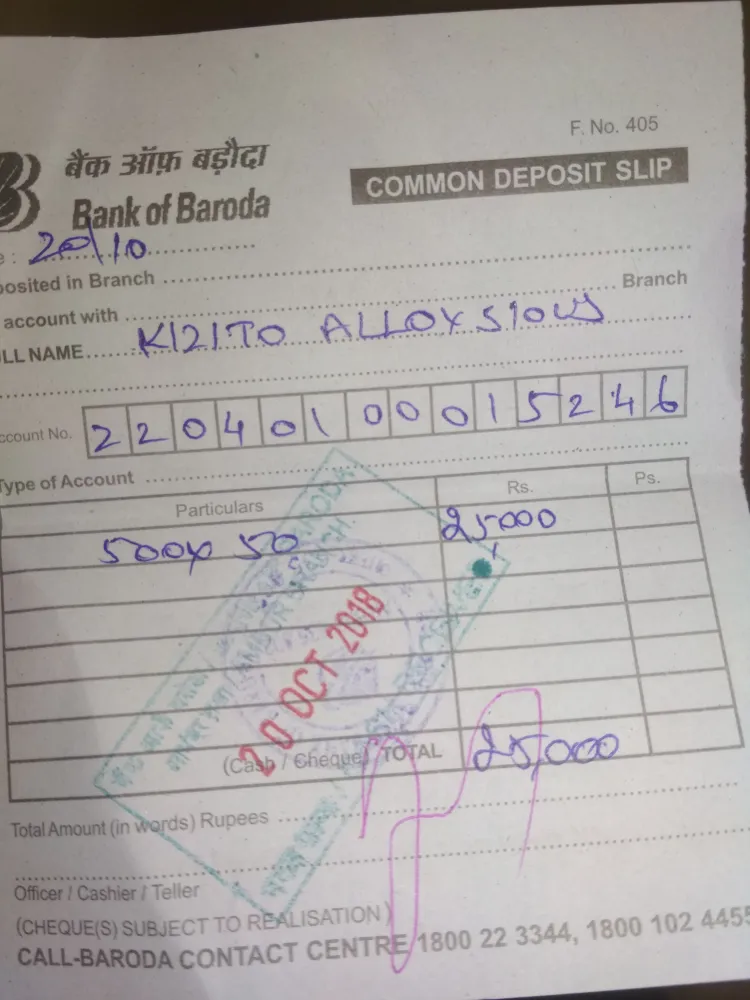 F. No. 405
बैंक ऑफ़ बड़ौदा
Bank of Baroda
COMMON DEPOSIT SLIP
e : 20/10
posited in Branch
account with Branch
LL NAME KIZITO ALLOYSIOUS
ccount No. 22040100015246
Type of Account
Particulars Rs. Ps.
500x 50 25000
20 OCT 2018
(Cash / Cheque) TOTAL 25,000
Total Amount (in words) Rupees
Officer / Cashier / Teller
(CHEQUE(S) SUBJECT TO REALISATION)
CALL-BARODA CONTACT CENTRE 1800 22 3344, 1800 102 4455